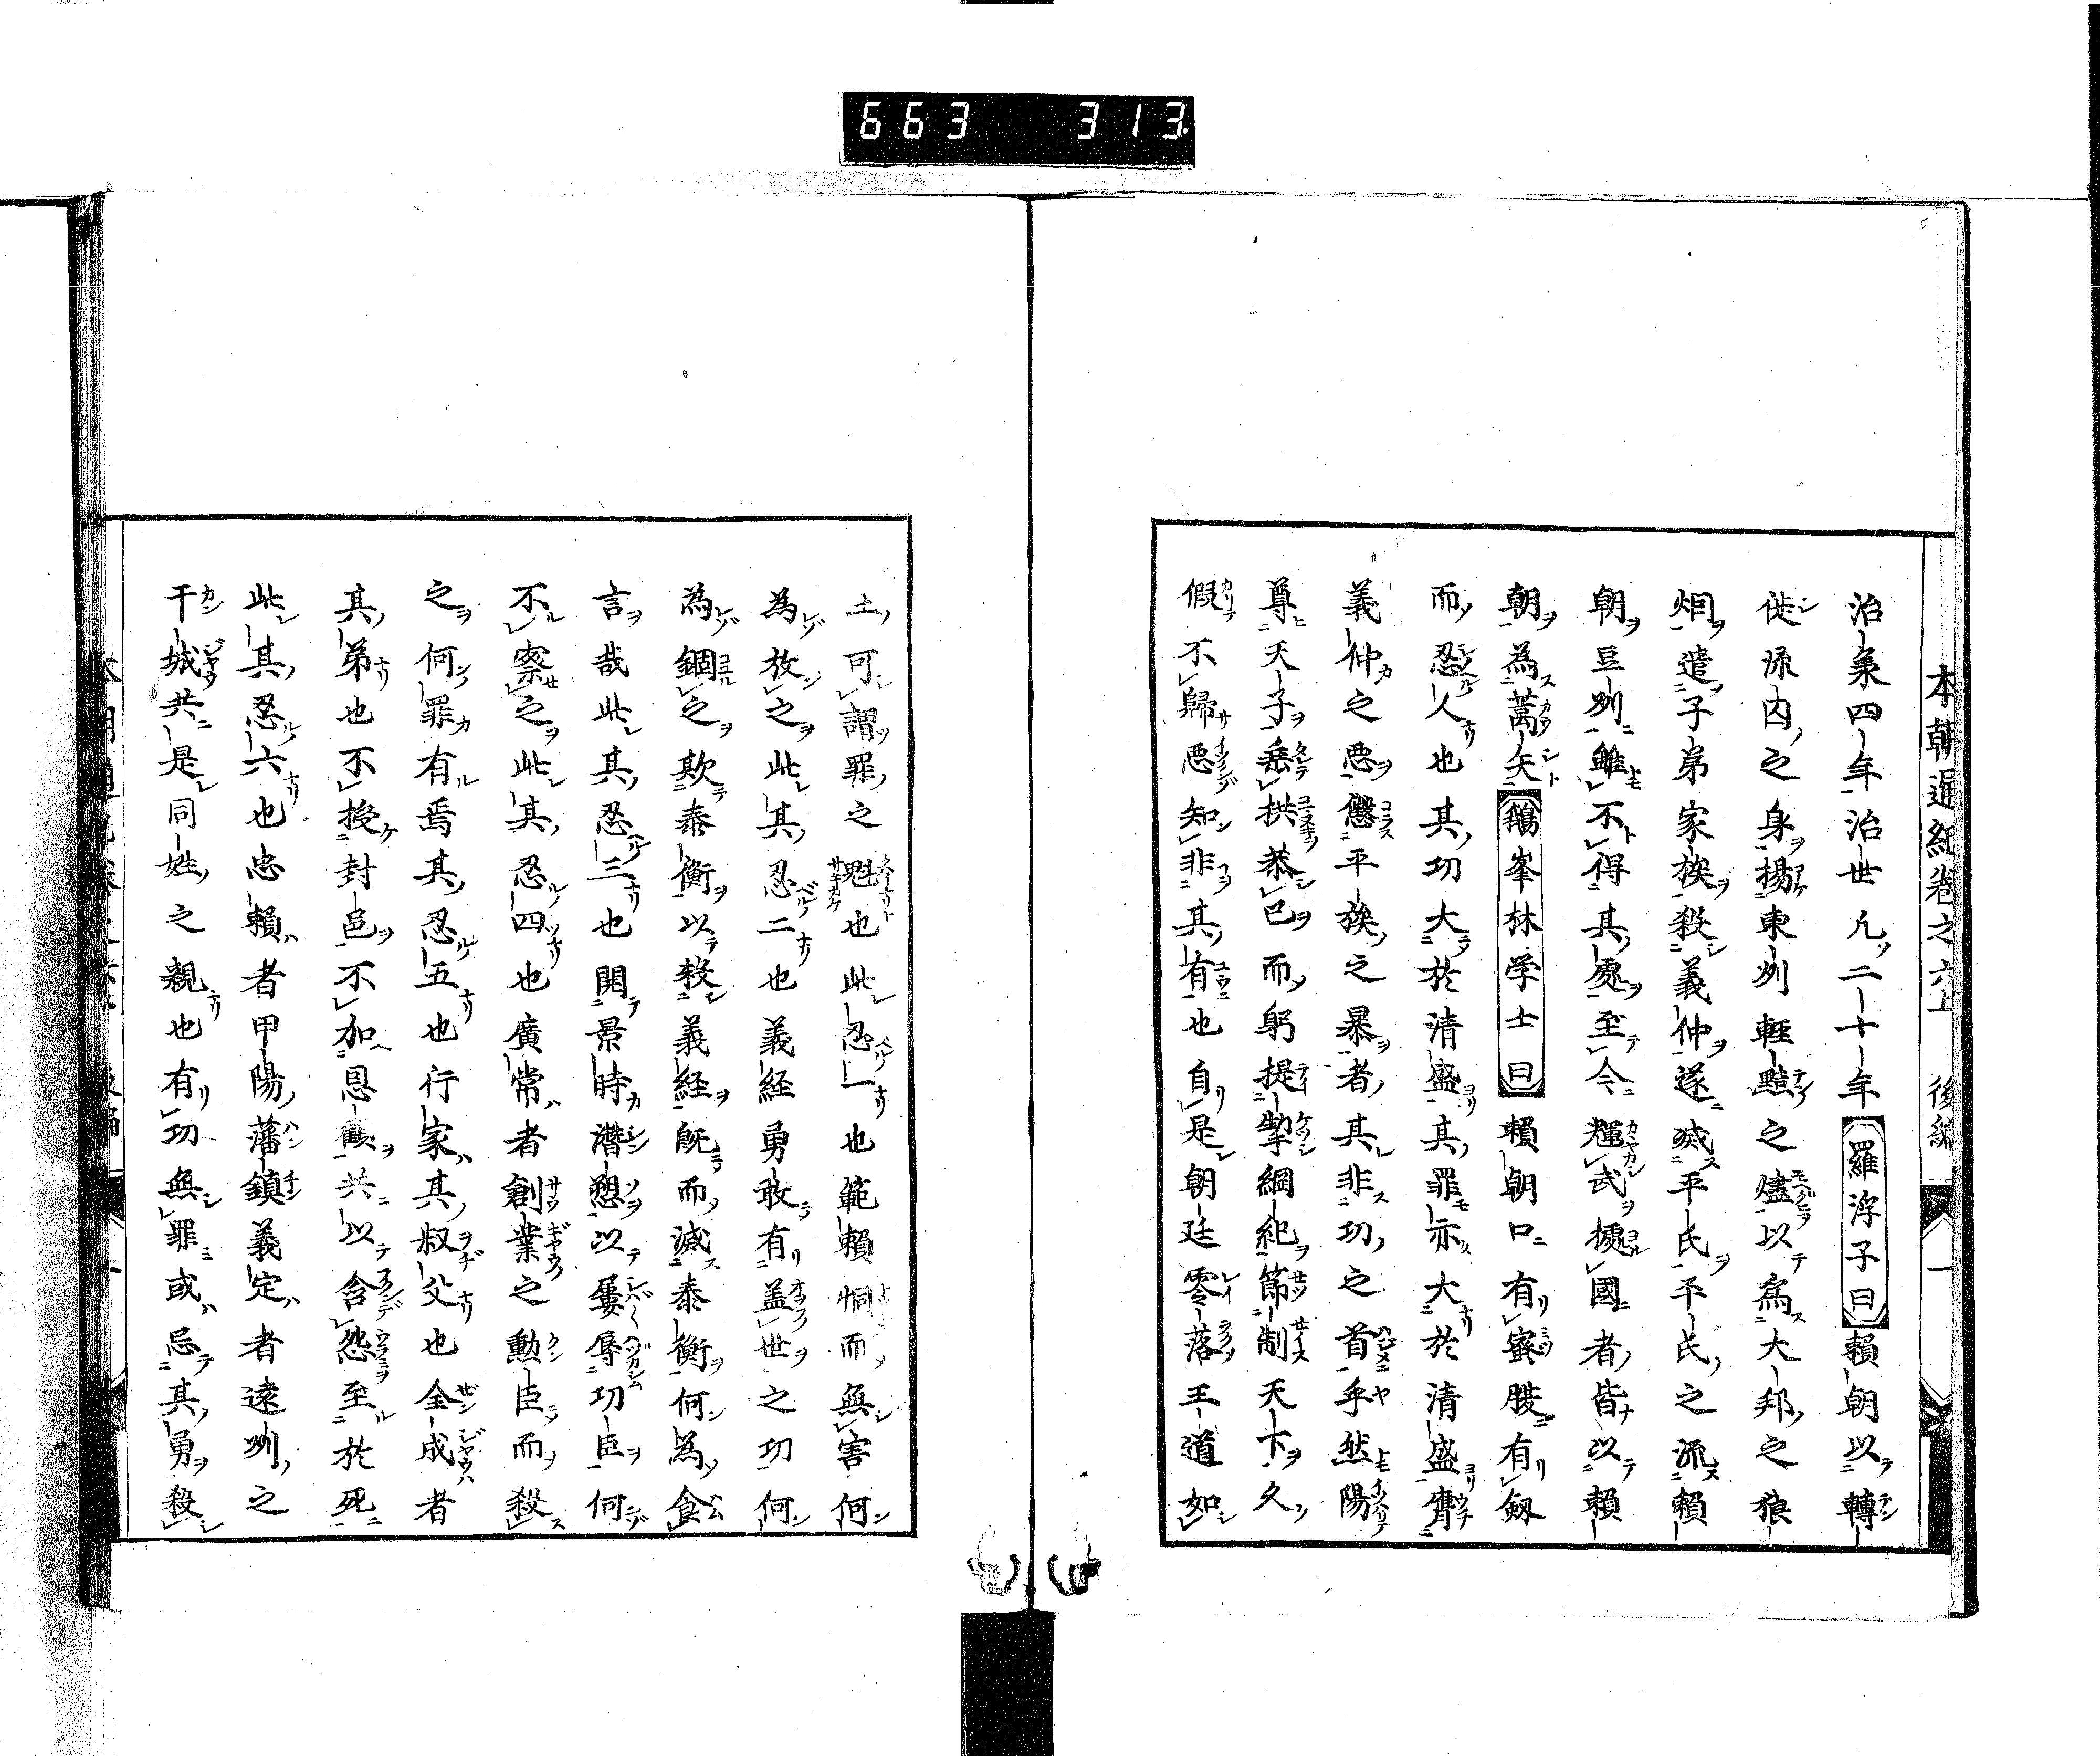 663 313
本朝通紀卷之六上 後編 一
治承四年治世凡二十年羅浮子曰賴朝以轉
徙流囚之身揚東州輕㸃之燼以爲大邦之狼
烟遣子弟家族殺義仲遂滅平氏平氏之流賴
朝豆州雖不得其處至今輝武據國者皆以賴
朝為蒿矢鵝峯林学士曰賴朝口有蜜腹有劔
而忍人也其功大於清盛其罪亦大於清盛膺
義仲之悪懲平族之暴者其非功之首乎然陽
尊天子垂拱恭己而躬提挈綱紀節制天下久
假不歸悪知非其有也自是朝廷零落王道如
土可謂罪之魁也此忍一也範賴恫而無害何
為放之此其忍二也義経勇敢有盖世之功何
為錮之欺泰衡以殺義経既而滅泰衡何為食
言哉此其忍三也開景時潜愬以屢辱功臣何
不察之此其忍四也廣常者創業之勲臣而殺
之何罪有焉其忍五也行家其叔父也全成者
其弟也不授封邑不加恩顧共以含怨至於死
此其忍六也忠賴者甲陽藩鎮義定者遠州之
干城共是同姓之親也有功無罪或忌其勇殺